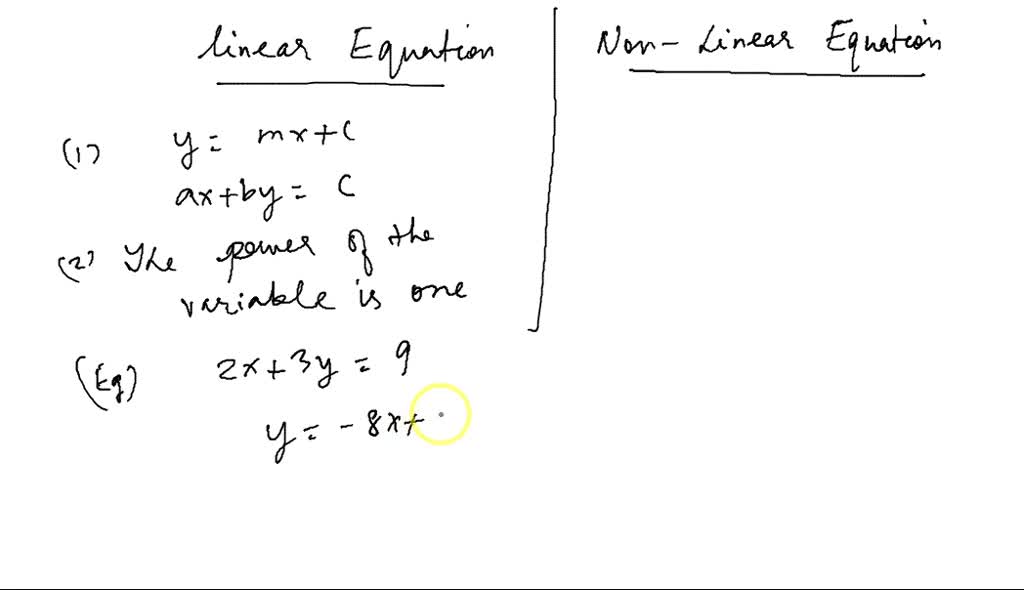 linear Equation
Non-Linear Equation
(1) y = mx+c
ax+by = c
(2) The power of the
variable is one
(Eg) 2x+3y = 9
y = -8x+